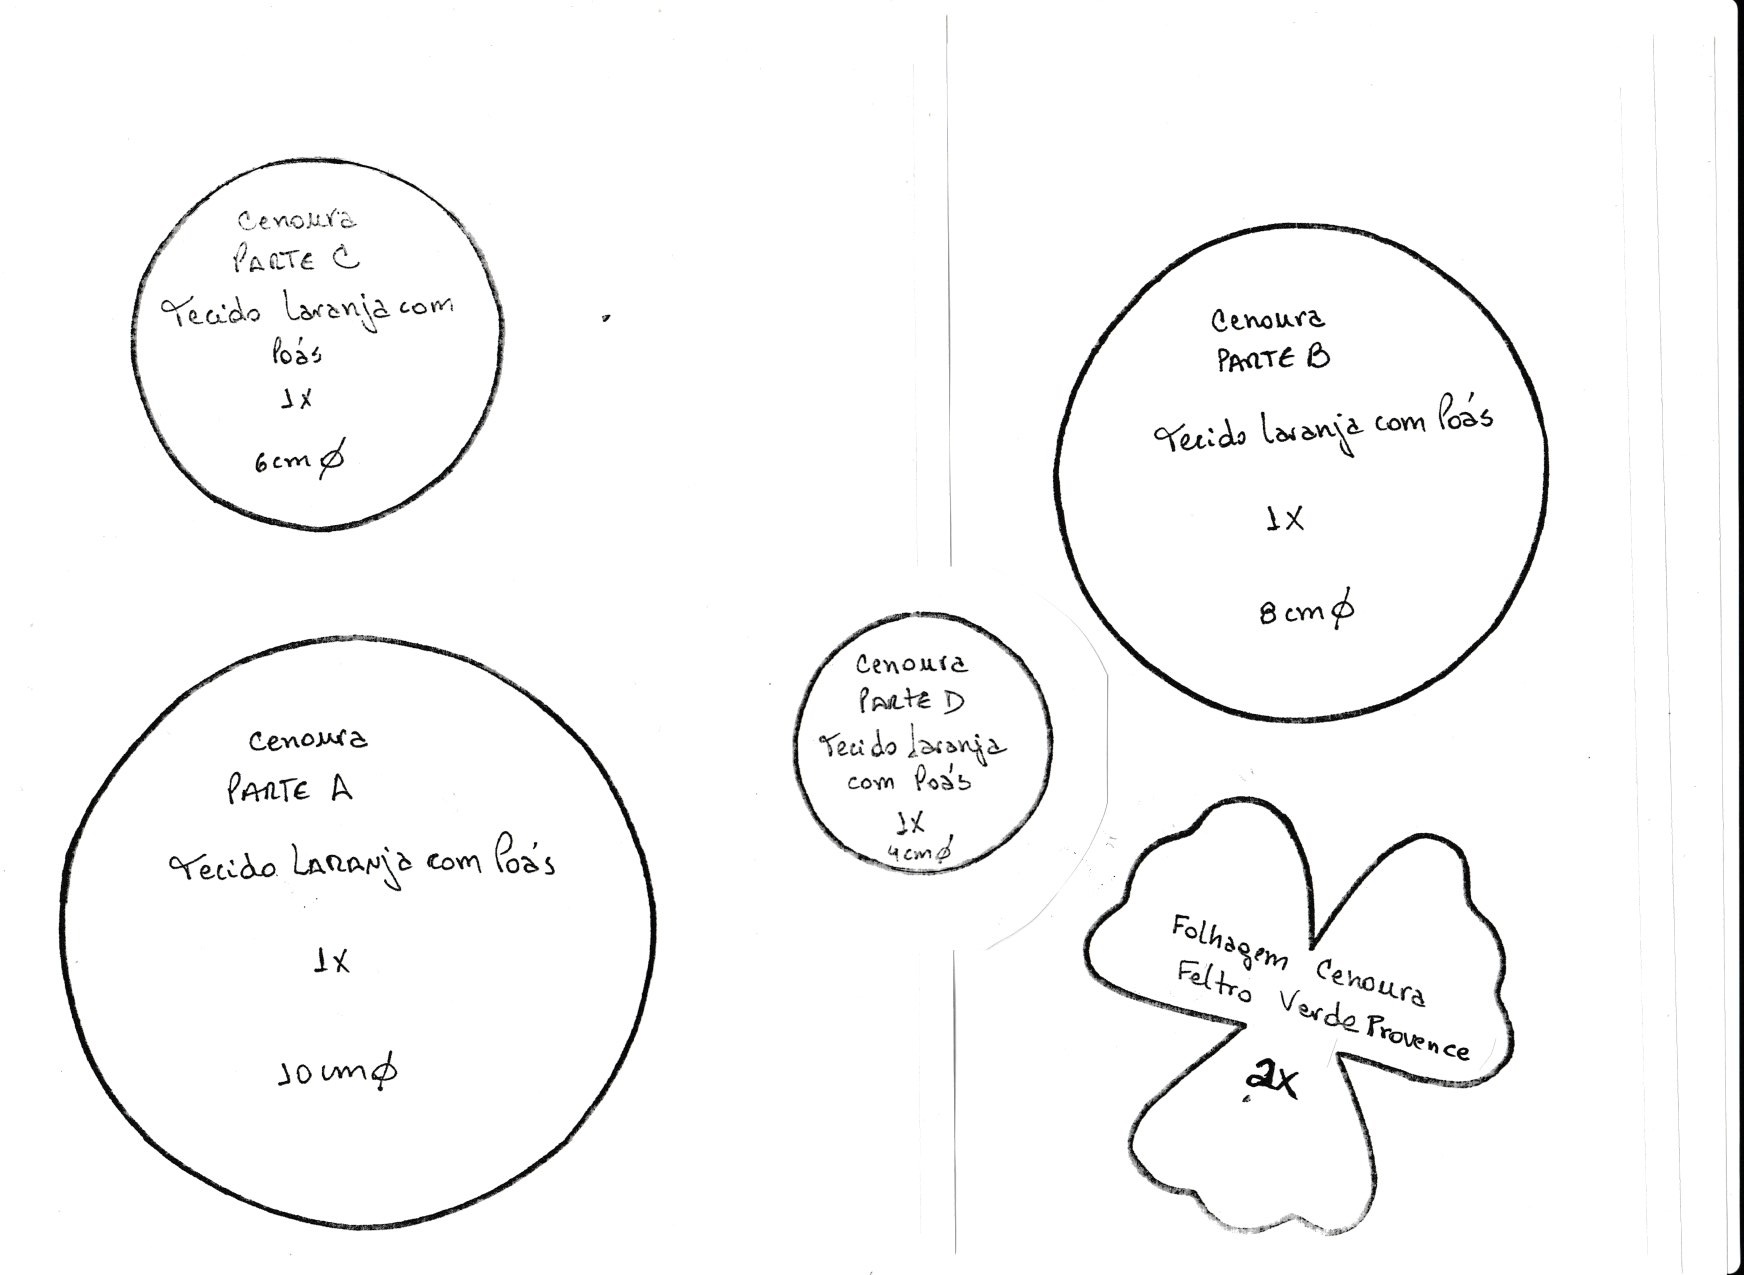 Cenoura
PARTE C
Tecido Laranja com
Poás
1X
6cm ∅
Cenoura
PARTE B
Tecido laranja com Poás
1X
8cm ∅
Cenoura
PARTE D
Tecido laranja
com Poás
1X
4cm ∅
Cenoura
PARTE A
Tecido LARANja com Poás
1X
10cm ∅
Folhagem Cenoura
Feltro Verde Provence
2x